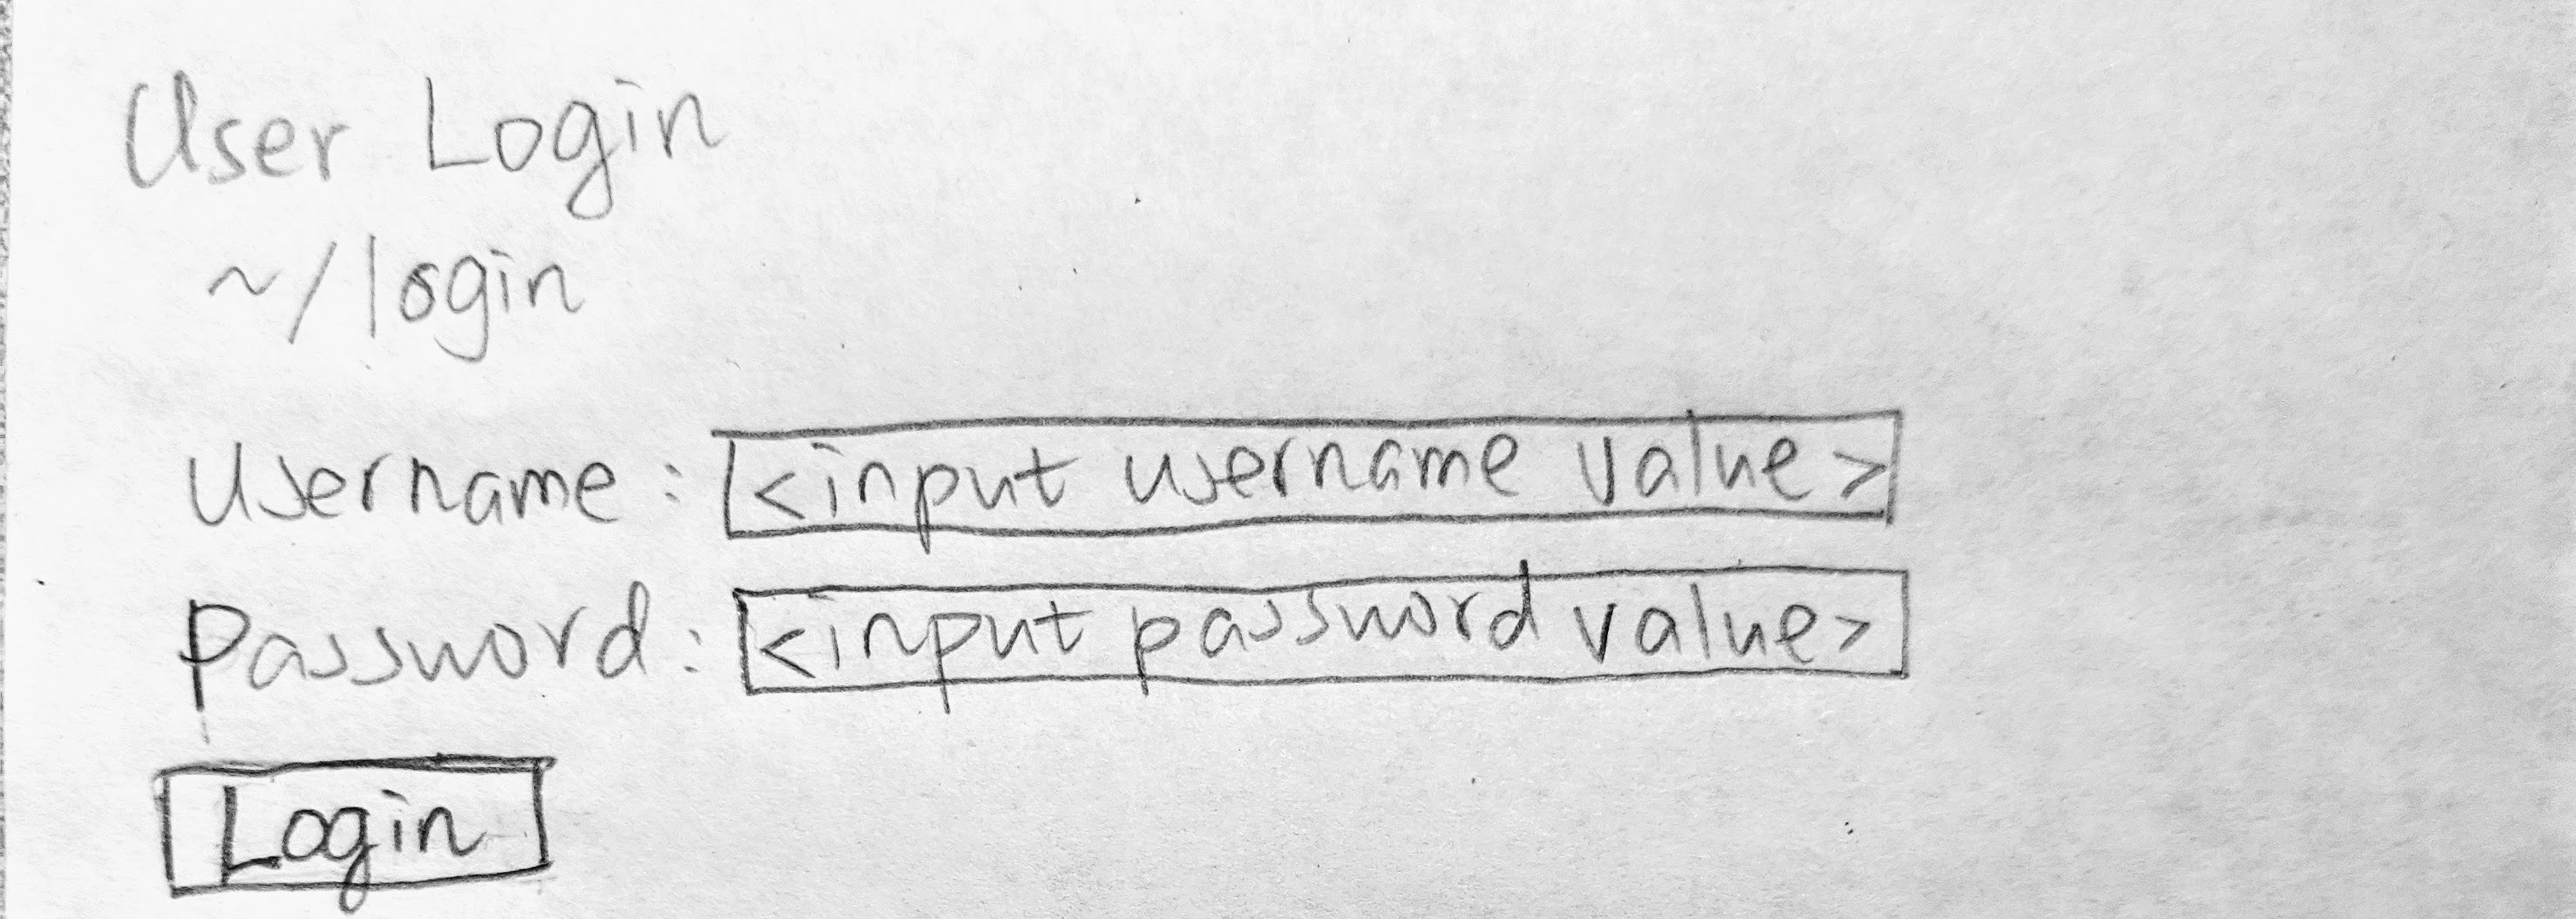 User Login
~/login
Username: <input username value>
Password: <input password value>
Login